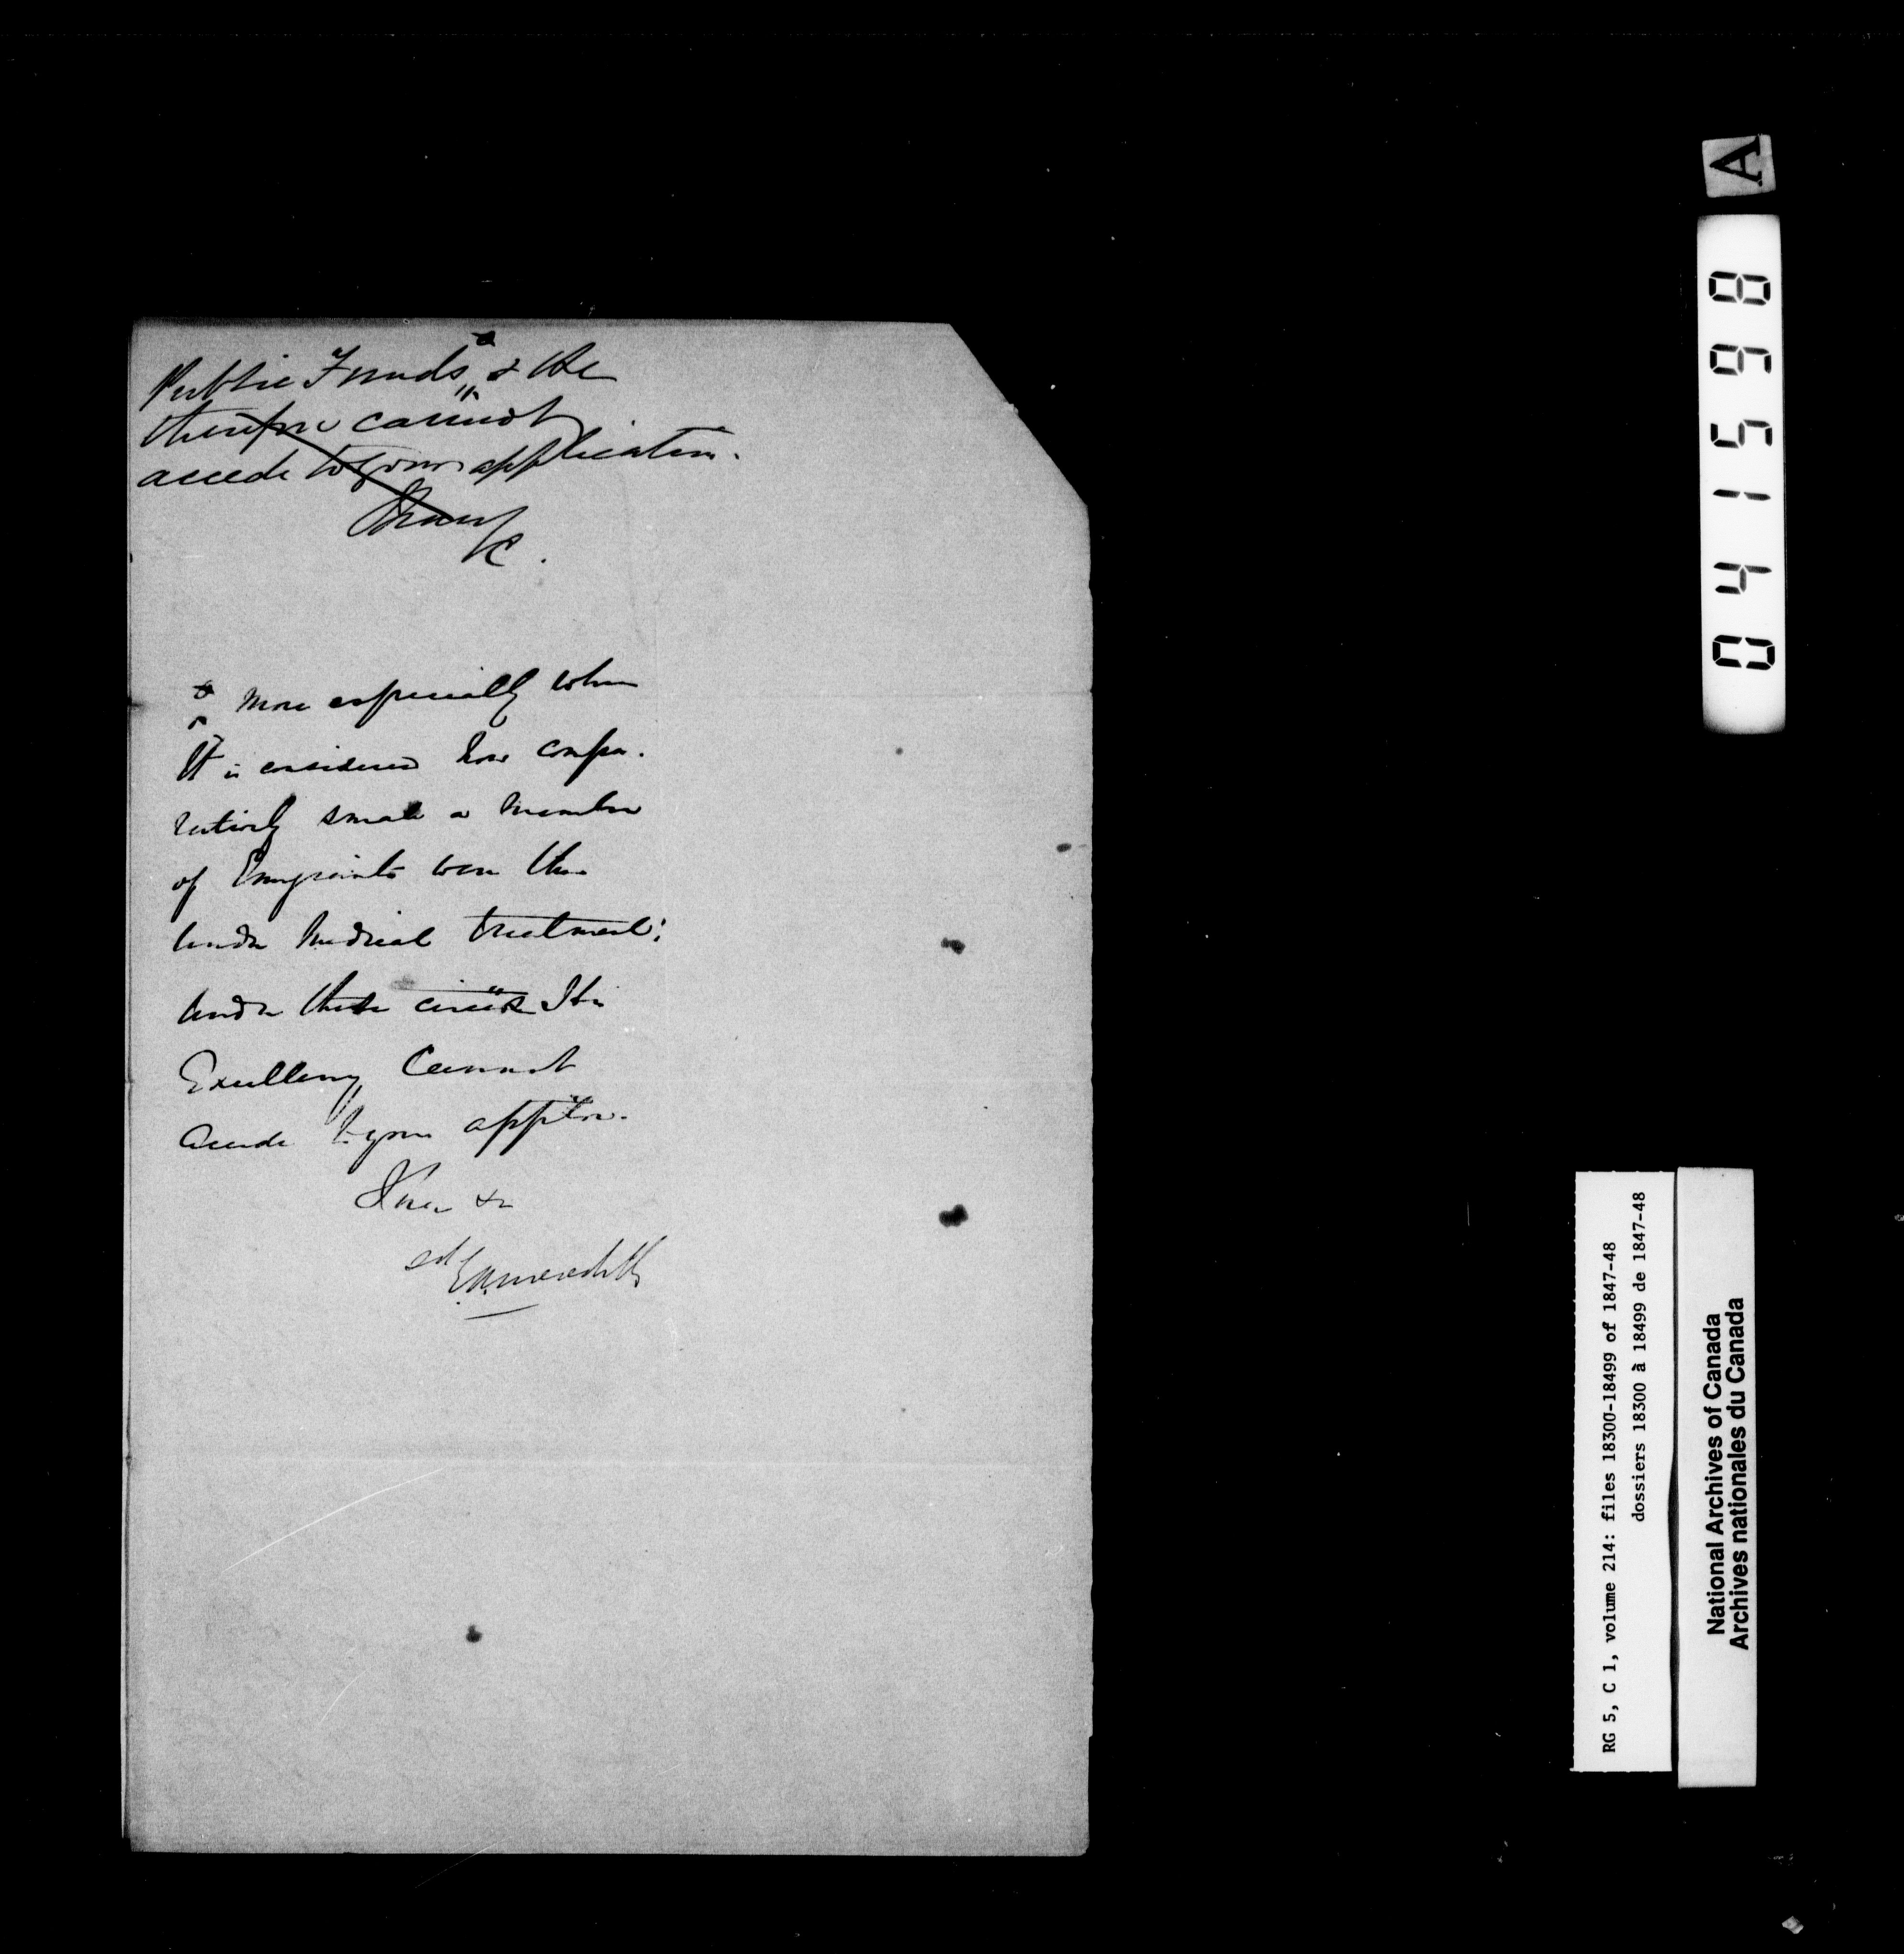 Public Funds & He
therefore cannot
accede to your application.
I have
&c.
& more especially when
It is considered how compa-
ratively small a number
of Emigrants were then
under medical treatment;
under these circes His
Excellency cannot
accede to your applton.
I have &c
sd E.A. Meredith
A
041598
RG 5, C 1, volume 214: files 18300-18499 of 1847-48
dossiers 18300 à 18499 de 1847-48
National Archives of Canada
Archives nationales du Canada